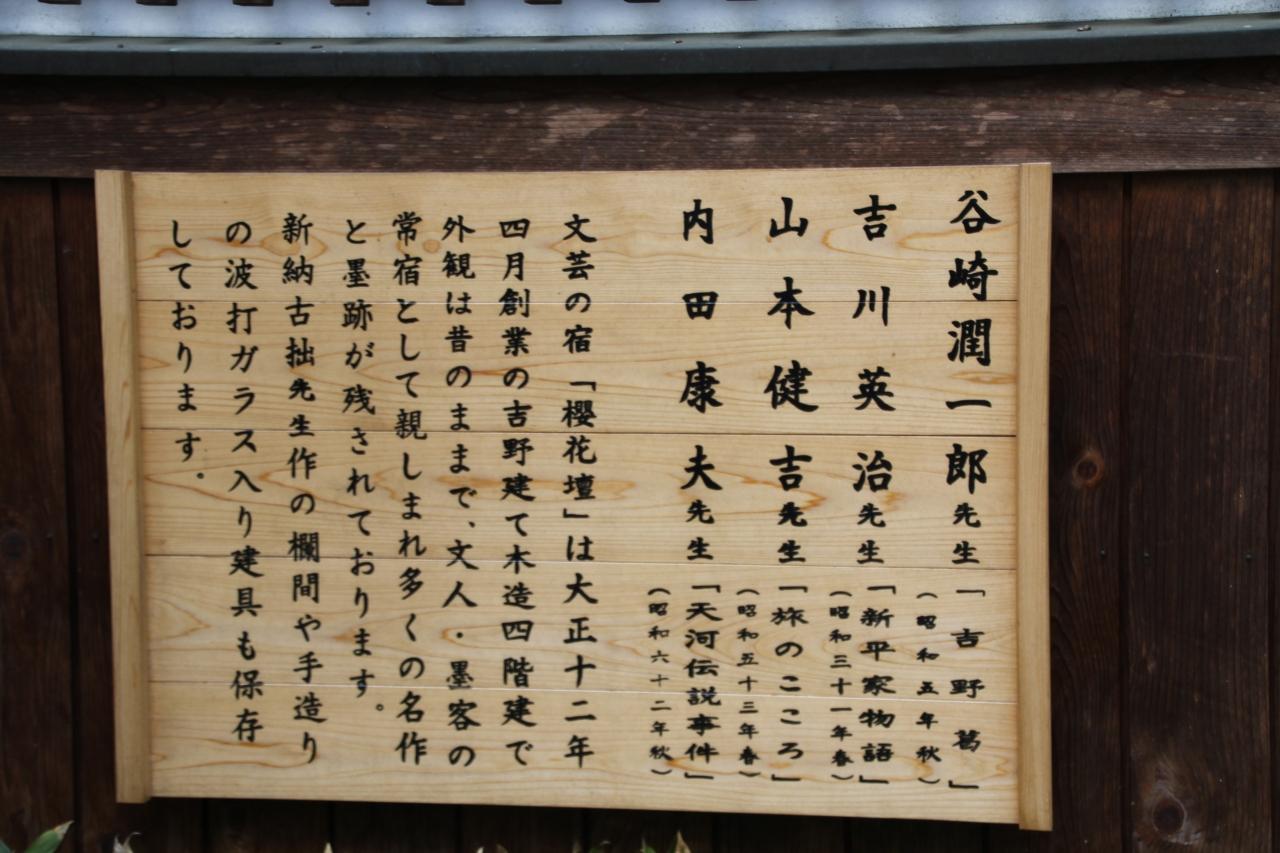 谷崎潤一郎先生「吉野葛」
(昭和五年秋)
吉川英治先生「新平家物語」
(昭和三十一年春)
山本健吉先生「旅のこころ」
(昭和五十三年春)
内田康夫先生「天河伝説事件」
(昭和六十二年秋)
文芸の宿「櫻花壇」は大正十二年
四月創業の吉野建て木造四階建で
外観は昔のままで、文人・墨客の
常宿として親しまれ多くの名作
と墨跡が残されております。
新納古拙先生作の欄間や手造り
の波打ガラス入り建具も保存
しております。